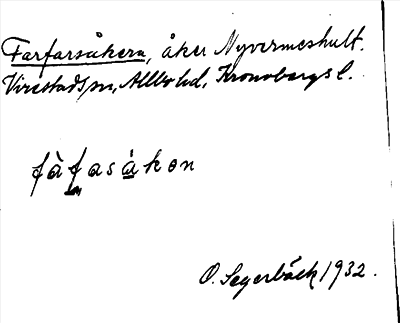 Farfarsåkern, åker Nyvermeshult.
Virestads sn, Allbo hd, Kronobergs l.
fàfasåkən
O. Segerbäck 1932.